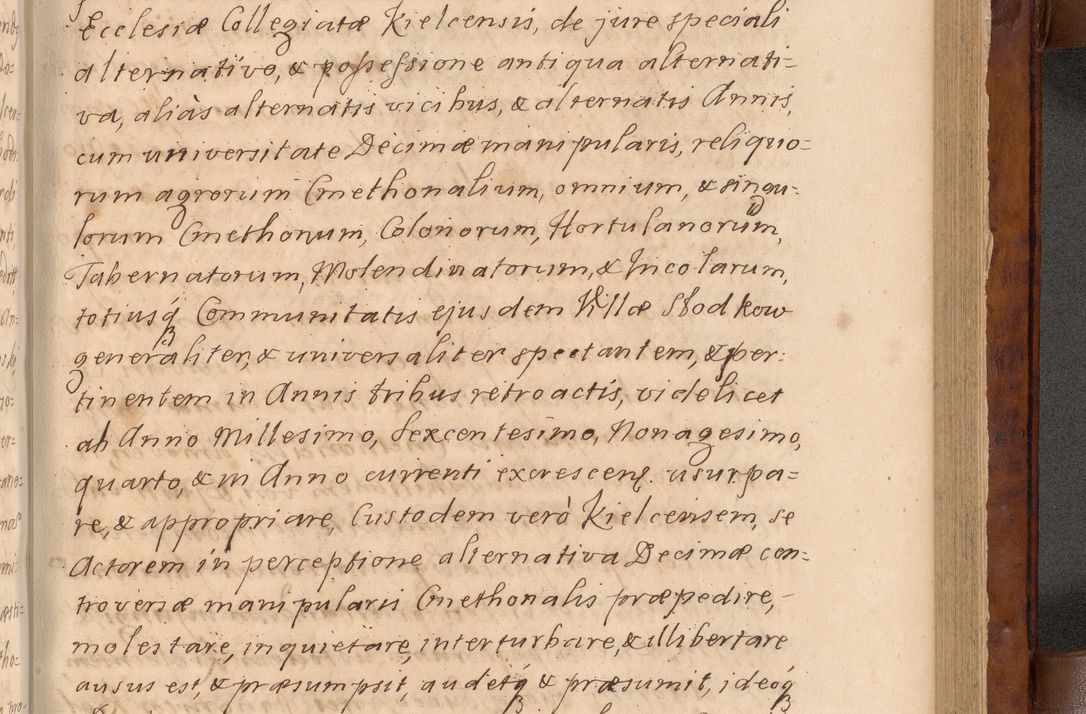 Ecclesiæ Collegiatæ Kielcensis, de jure speciali
alternativo, & possessione antiqua alternati=
va, aliàs alternatis vicibus, & alternatis Annis,
cum universitate Decimæ manipularis, reliquo=
rum agrorum Cmethonalium, omnium, & singu=
lorum Cmethonum, Colonorum, Hortulanorum,
Tabernatorum, Molendinatorum, & Incolarum,
totiusq́ Communitatis ejusdem Villæ Słodkow
generaliter, & universaliter spectantem, & per=
tinentem in Annis tribus retroactis, videlicet
ab Anno Millesimo, Sexcentesimo, Nonagesimo,
quarto, & in Anno currenti excrescen. usurpa=
re, & appropriare, Custodem verò Kielcensem, se
Actorem in perceptione alternativa Decimæ con=
troversæ manipularis Cmethonalis præpedire,
molestare, inquietare, interturbare, & illibertare
ausus est, & præsumpsit, audetq́ & præsumit, ideoq́